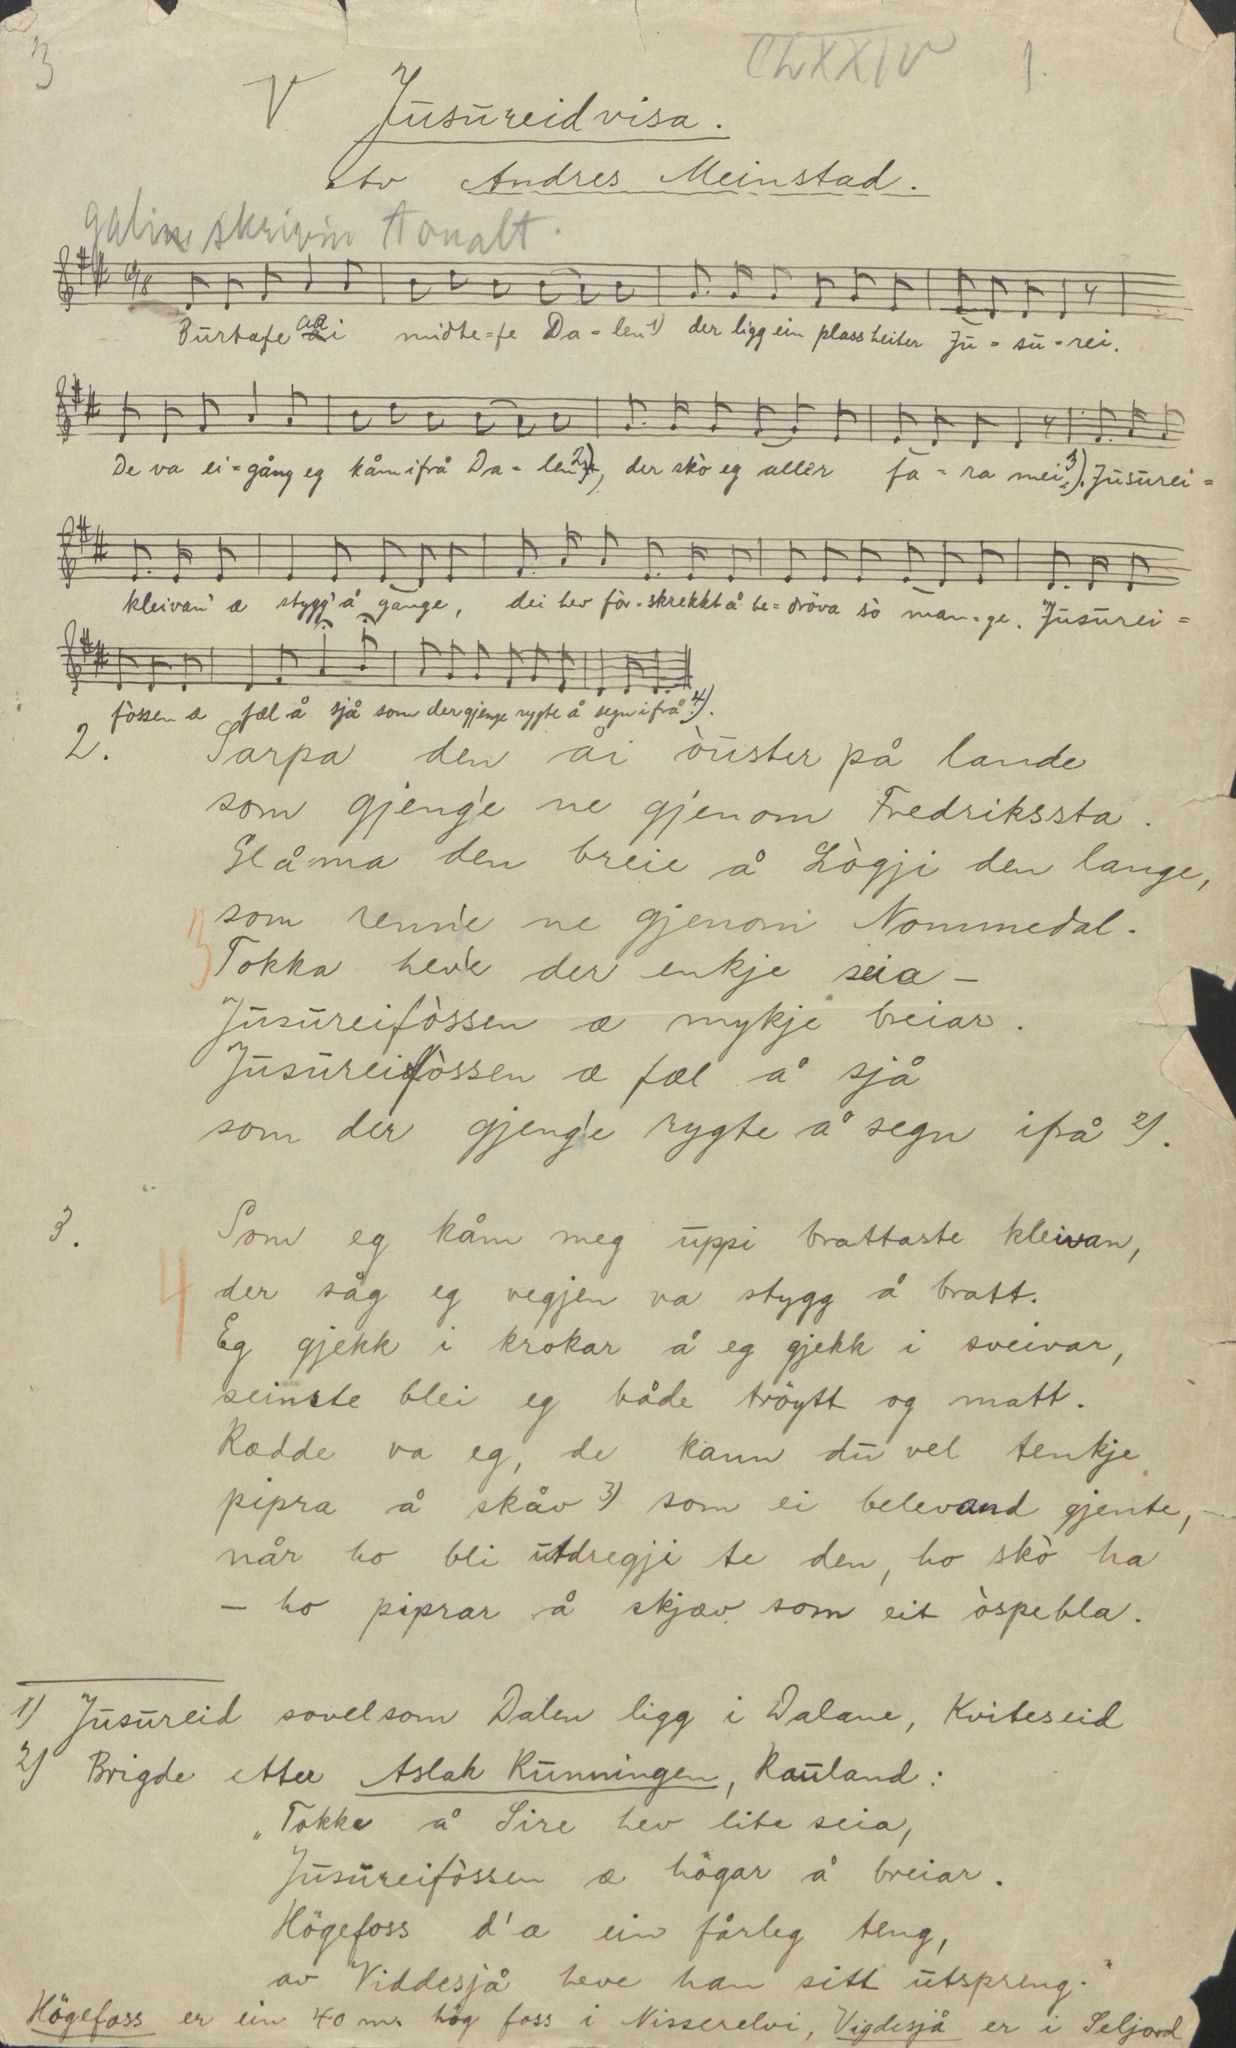 3 V CLXXIV 1.
Jusureidvisa.
av Andres Meinstad.
galin skrivin tonalt.
6/8
Burtafe aai midte-fe Da-len 1) der ligg ein plass heiter Ju-su-rei.
De va ei-gång eg kåm ifrå Da-len 2), der skò eg aller fa-ra mei 3). Jusurei=
kleivan' æ stygg' å gange, dei hev fòr-skrekkt å be-dröva sò man-ge. Jusurei=
fòssen æ fæl å sjå som der gjenge rygte å segn ifrå 4).
2. Sarpa den åi òuster på lande
som gjeng'e ne gjenom Fredrikssta.
Glåma den breie å Lògji den lange,
som renn'e ne gjenom Nommedal.
3 Tokka hev'e der enkje seia –
Jusureifòssen æ mykje breiar.
Jusureifòssen æ fæl å sjå
som der gjeng'e rygte å segn ifrå 2).
3. Som eg kåm meg uppi brattaste kleivan,
4 der såg eg vegjen va stygg å bratt.
Eg gjekk i krokar å eg gjekk i sveivar,
seinste blei eg både tröytt og matt.
Rædde va eg, de kann du vel tenkje
pipra å skåv 3) som ei belevand gjente, –
når ho bli utdregji te den, ho skò ha
– ho piprar å skjæv som eit òspebla.
1) Jusureid sovelsom Dalen ligg i Dalane, Kviteseid
2) Brigde etter Aslak Runningen, Rauland:
„Tokke å Sire hev lite seia,
Jusureifòssen æ högar å breiar.
Högefoss d'æ ein fårleg teng,
av Viddesjå heve han sitt utspreng."
Högefoss er ein 40 m. hög foss i Nisserelvi, Vigdesjå er i Seljord